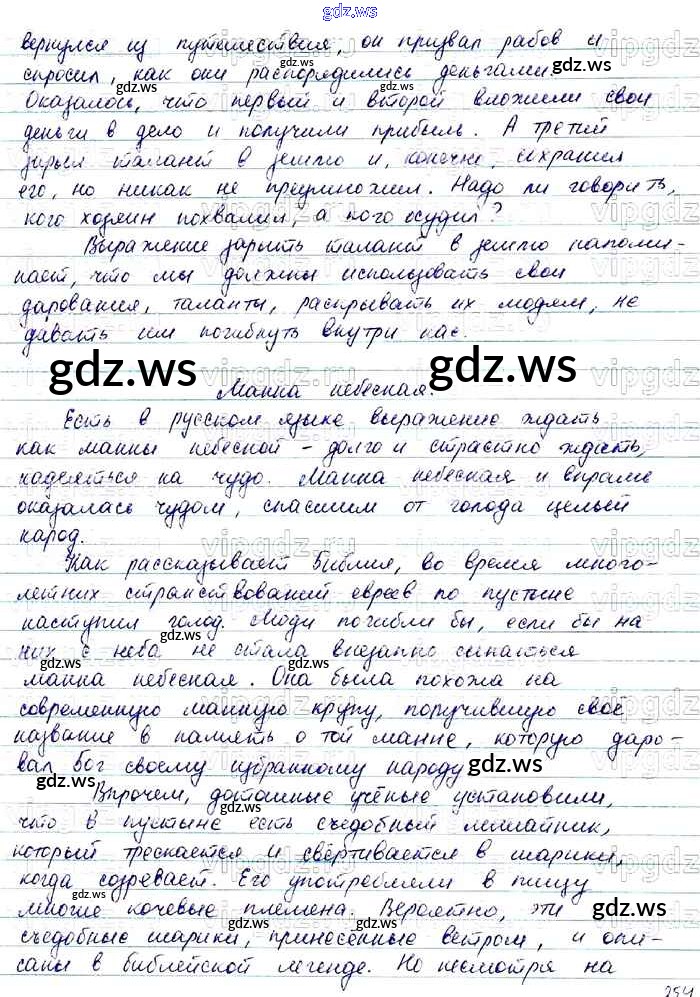 gdz.ws
вернулся из путешествия, он призвал рабов и
спросил, как они распорядились деньгами.
Оказалось, что первый и второй вложили свои
деньги в дело и получили прибыль. А третий
зарыл талант в землю и, конечно, сохранил
его, но никак не преумножил. Надо ли говорить,
кого хозяин похвалил, а кого осудил?
Выражение зарыть талант в землю напоми-
нает, что мы должны использовать свои
дарования, таланты, раскрывать их людям, не
давать им погибнуть внутри нас.
gdz.ws gdz.ws
Манна небесная.
Есть в русском языке выражение ждать
как манны небесной - долго и страстно ждать,
надеяться на чудо. Манна небесная и вправе
оказалась чудом, спасшим от голода целый
народ.
Как рассказывает Библия, во время много-
летних странствований евреев по пустыне
наступил голод. Люди погибли бы, если бы на
них с неба не стала внезапно сыпаться
манна небесная. Она была похожа на
современную манную крупу, получившую своё
название в память о той манне, которую даро-
вал Бог своему избранному народу.
Впрочем, дотошные учёные установили,
что в пустыне есть съедобный лишайник,
который трескается и свёртывается в шарики,
когда созревает. Его употребляли в пищу
многие кочевые племена. Вероятно, эти
съедобные шарики, принесённые ветром, и опи-
саны в библейской легенде. Но несмотря на
254